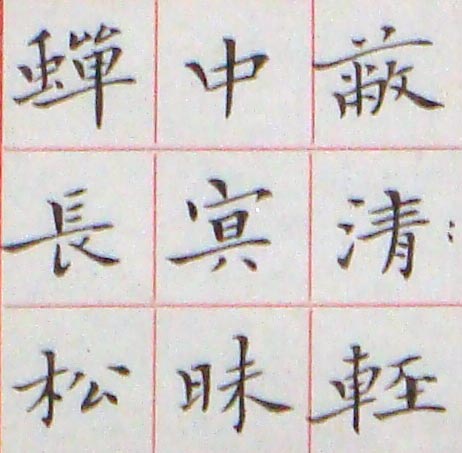 蔽清:輕
中冥昧
蟬長松